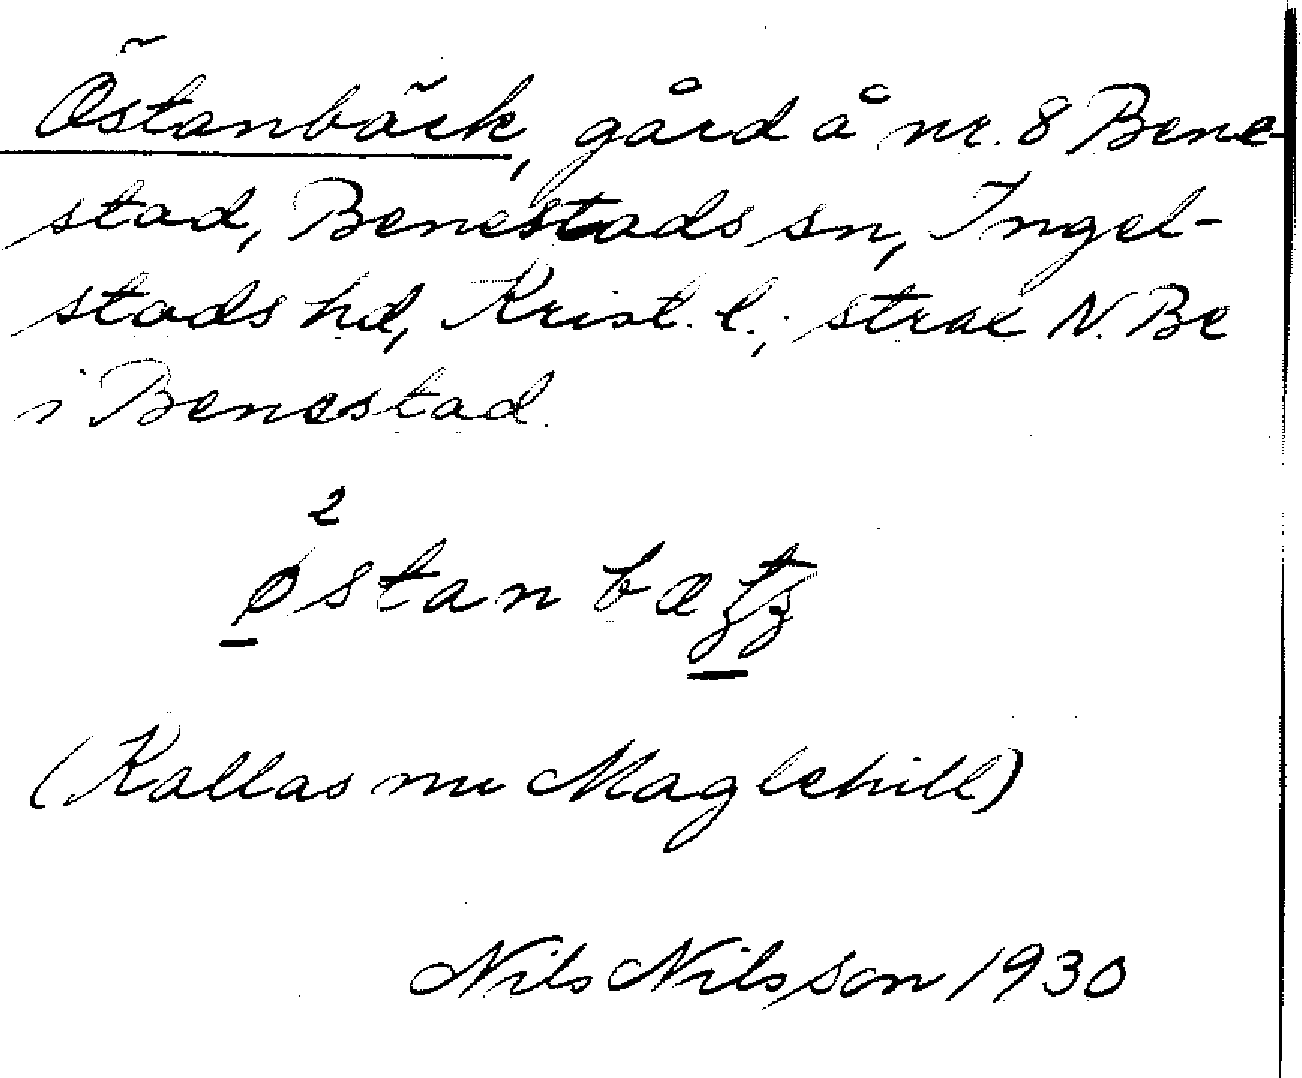 Östanbäck, gård å nr. 8 Bene-
stad, Benestads sn, Ingel-
stads hd, Krist. l.; strax N. Be
i Benestad.
2
østanbæ
(Kallas nu Maglehill)
Nils Nilsson 1930